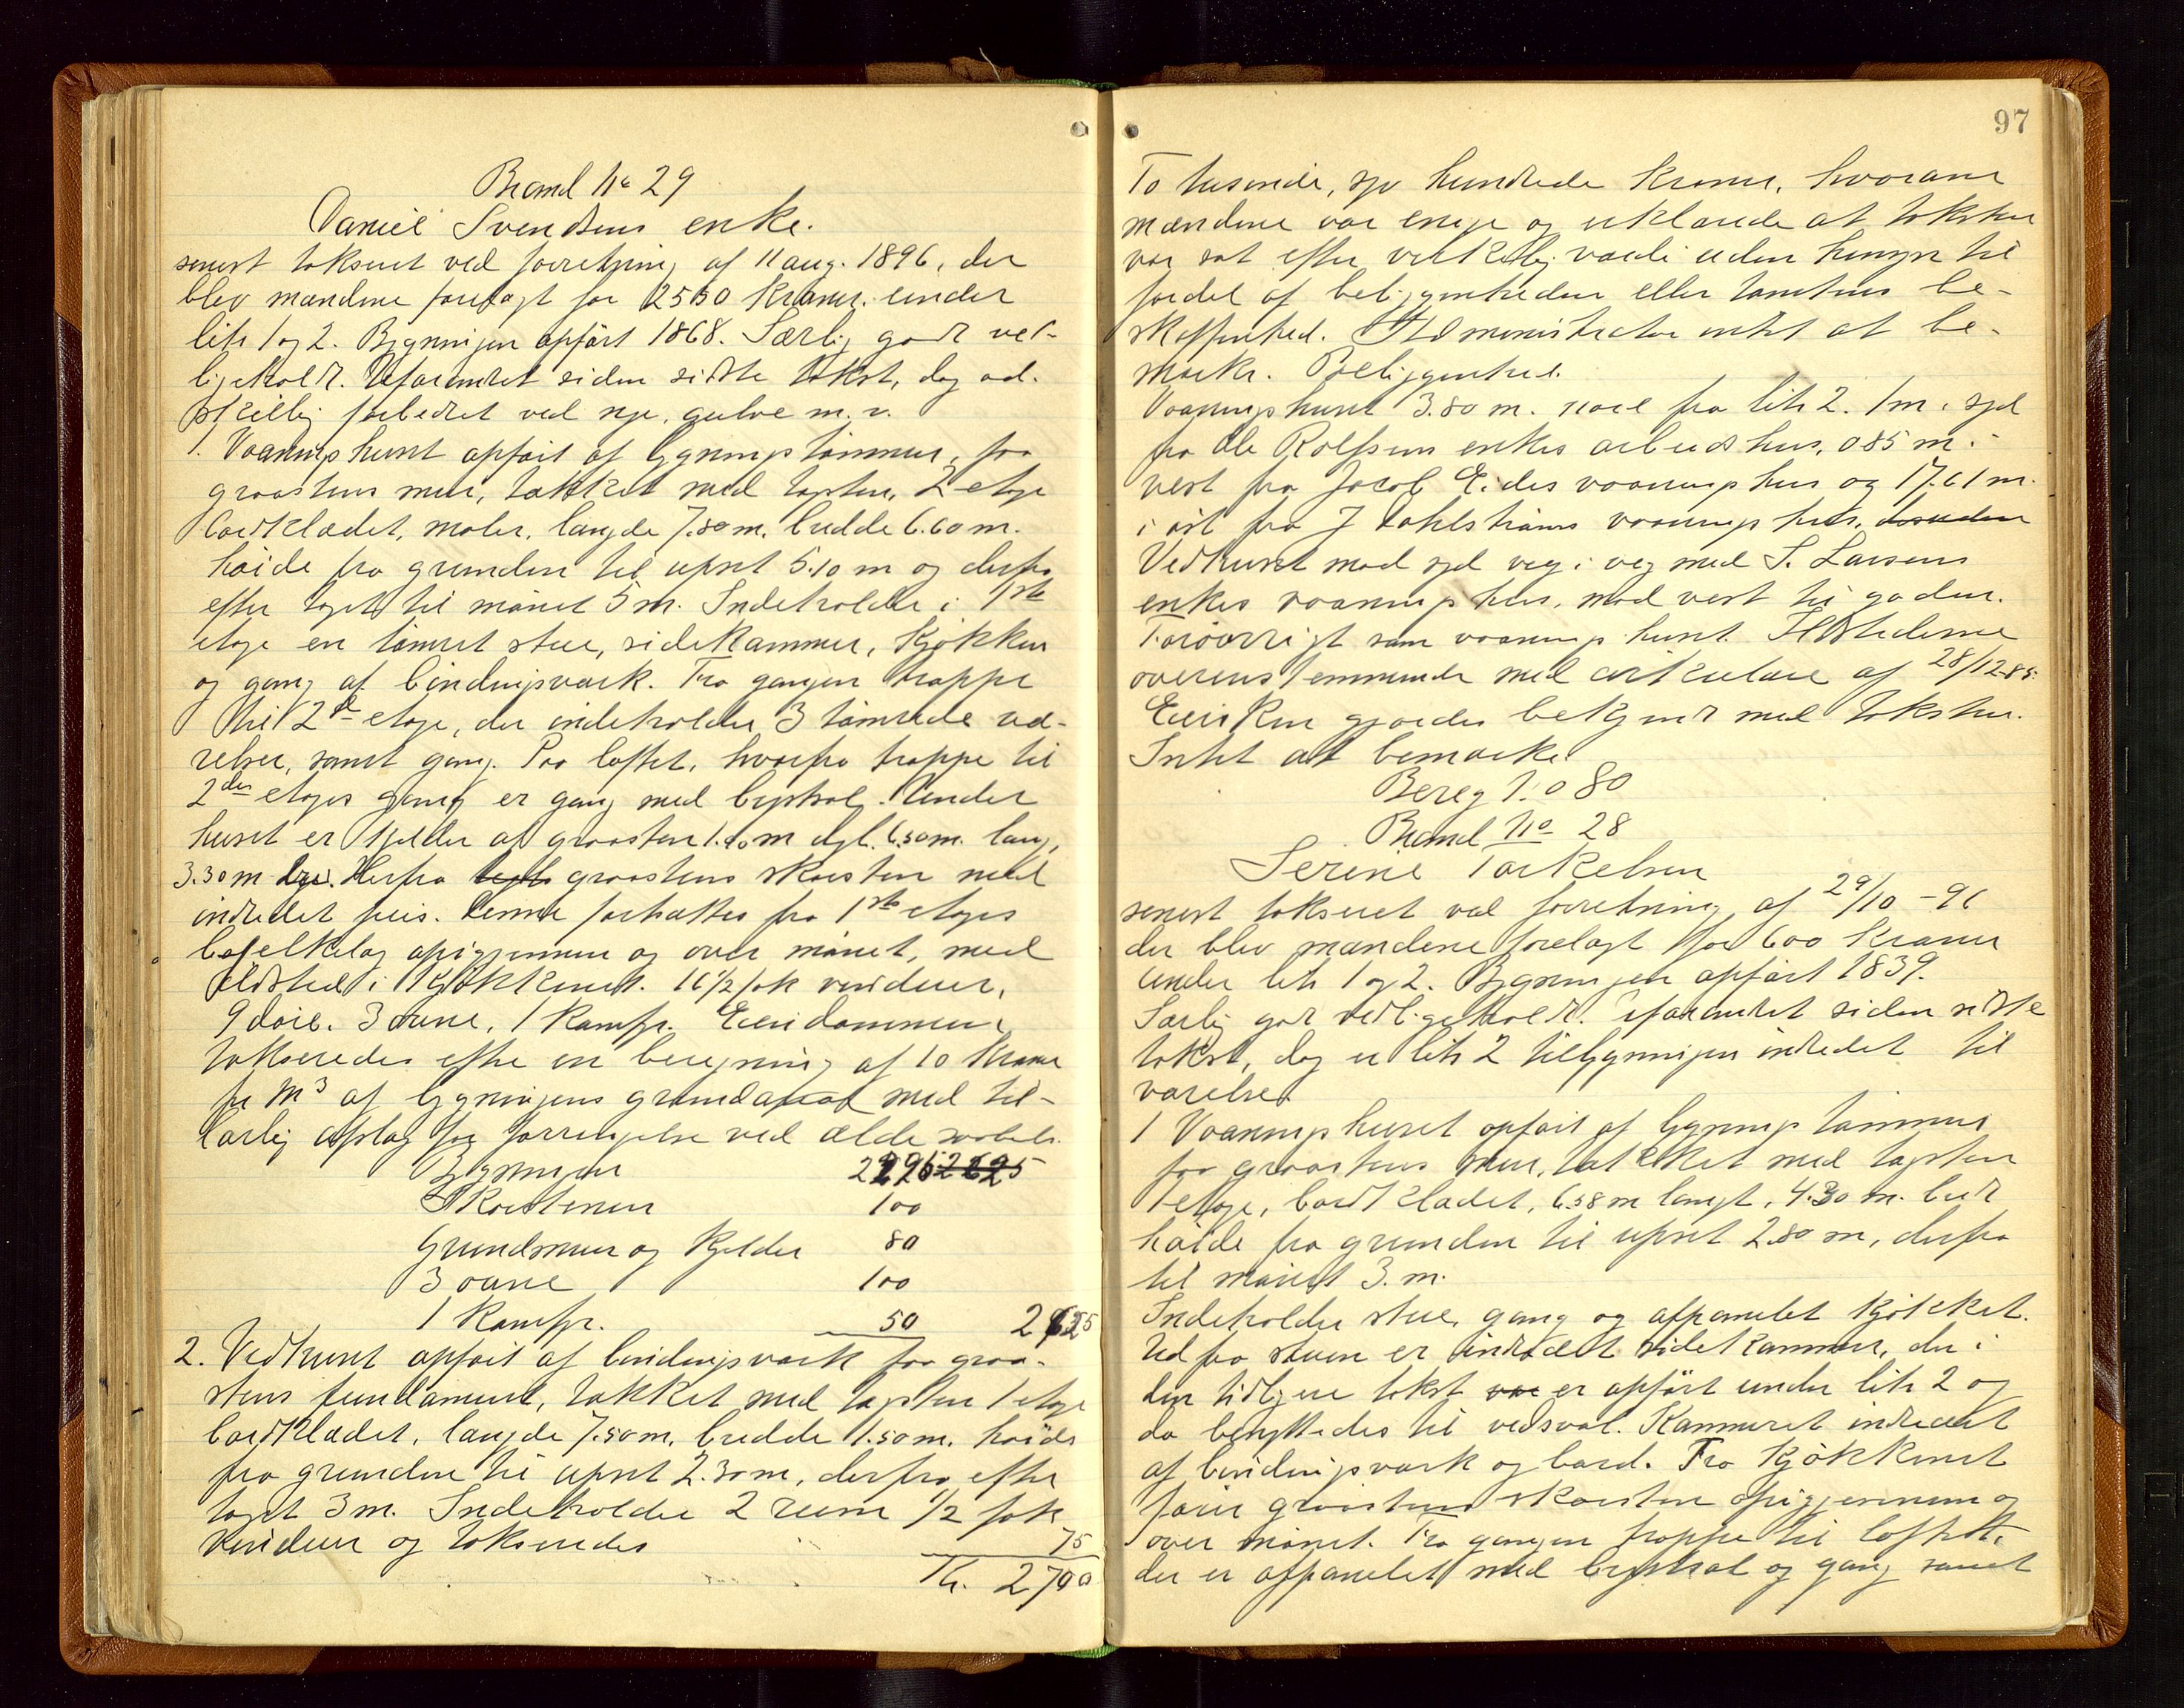 Brand No 29
Daniel Svendsens enke.
senest takseret ved forretning af 11 aug. 1896, der
blev mændene forelagt for 2550 kroner under
litr 1 og 2. Bygningen opført 1868. Særlig godt ved-
ligeholdt. Uforandret siden sidste takst, dog ad-
skillig forbedret ved nye gulve m. v.
1. Vaaningshuset opført af bygningstømmer, paa
graastens mur, tækket med tagsten, 2 etage
bordklædet, malet, længde 7.80 m. bredde 6.60 m.
høide fra grunden til upset 5.10 m og derfra
efter taget til mønet 5 m. Indeholder i 1ste
etage en tømret stue, sidekammer, kjøkken
og gang af bindingsværk. Fra gangen trappe
til 2den etage, der indeholder 3 tømrede væ-
relser, samt gang. Paa loftet, hvorfra trappe til
2den etages gang er gang med brystsval. Under
huset er kjelder af graasten 1.90 m dyb. 6.50 m. lang,
3.30 m br. Herfra graastens skorsten med
indredet peis. Denne fortsættes fra 1ste etages
bjelkelag opigjennem og over mønet, med
ildsted i kjøkkenet. 16 1/2 fak vinduer,
9 døre. 3 ovne, 1 komfyr. Eiendommen
takseredes efter en beregning af 10 kroner
pr M3 af bygningens grundareal med til-
børlig afslag for forringelse ved ælde saaledes
Bygningen 2295 2625
Skorstenen 100
Grundmur og kjelder 80
3 ovne 100
1 Komfyr. 50 2625
2. Vedhuset opført af bindingsværk paa graa-
stens fundament, tækket med tagsten 1 etage
bordklædet, længde 7.50 m. bredde 1.50 m. høide
fra grunden til upset 2.30 m, derfra efter
taget 3 m. Indeholder 2 rum 1/2 fak
vinduer og takseredes 75
Kr. 2700
97
To tusende, syv hundrede kroner, hvorom
mændene var enige og erklærede at taksten
var sat efter virkelig værdi uden hensyn til
fordel af beliggenheden eller tomtens be-
skaffenhed. Administrator intet at be-
mærke. Beliggenhed.
Vaaningshuset 3.80 m. nord fra litr 2. 1 m. syd
fra Ole Rolfsens enkes arbeidshus, 0.85 m.
vest fra Jacob Eides vaaningshus og 17.61 m.
i øst fra J Dahlstrøms vaaningshus, desuden
Vedhuset mod syd veg i veg med S. Larsens
enkes vaaningshus, mod vest til gaden.
Forøvrigt som vaaningshuset. Ildstederne
overensstemmende med cirkulære af 28/12 85.
Eierinden gjordes bekjendt med taksten.
Intet at bemærke
Bereg 1: 0 80
Brand No 28
Serine Torkelsen
senest takseret ved forretning af 29/10 - 96
der blev mændene forelagt for 600 kroner
under litr 1 og 2. Bygningen opført 1839.
Særlig god vedligeholdt. Uforandret siden sidste
takst, dog er litr 2 tilbygningen indredet til
værelse.
1 Vaaningshuset opført af bygningstømmer
paa graastens mur, tækket med tagsten
1 etage, bordklædet, 6.58 m langt, 4.30 m. bredt
høide fra grunden til upset 2.80 m, derfra
til mønet 3. m.
Indeholder stue, gang og afpanelet kjøkket.
Ud fra stuen er indredet sidekammer, der i
den tidligere takst var er opført under litr 2 og
da benyttedes til vedsval. Kammeret indredet
af bindingsværk og bord. Fra kjøkkenet
fører graastens skorsten opigjennem og
over mønet. Fra gangen trappe til loftet,
der er afpanelet med brystsval og gang samt